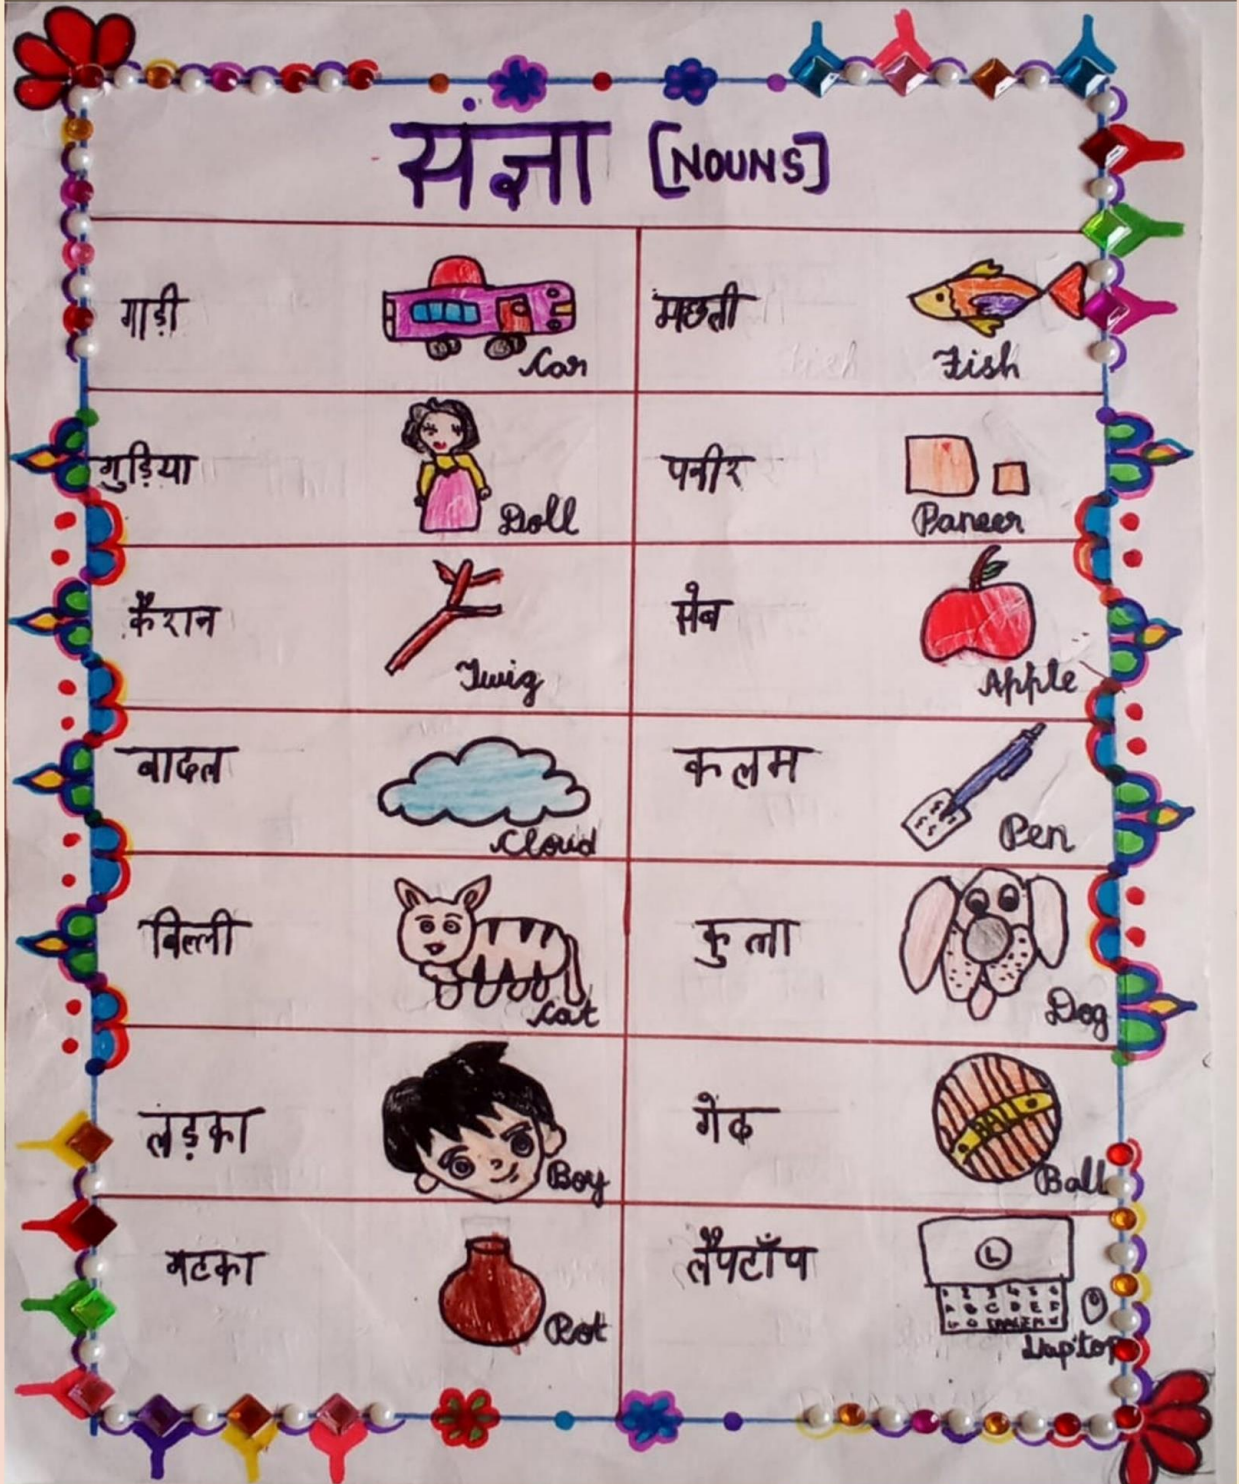 संज्ञा [NOUNS]
गाड़ी Car
मछली Fish
गुड़िया Doll
पनीर Paneer
कैरान Twig
सेब Apple
बादल Cloud
कलम Pen
बिल्ली Cat
कुत्ता Dog
लड़का Boy
गेंद BALL Ball
मटका Pot
लैपटॉप L Laptop